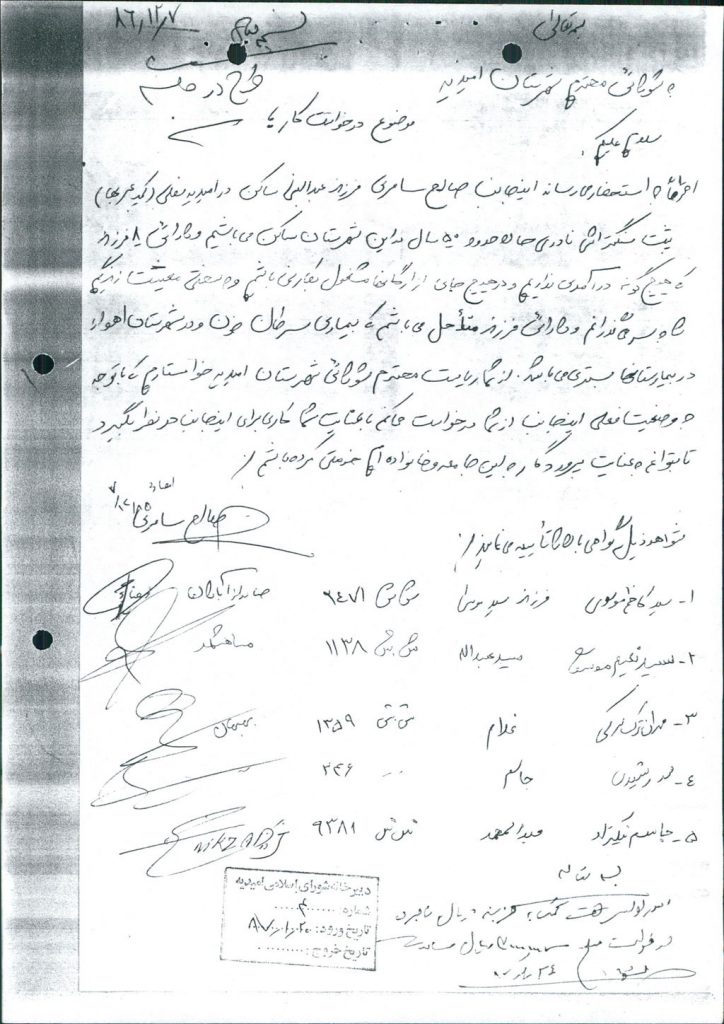 بسمه تعالی
۸۶/۱۲/۷
طرح در جلسه
به شورای محترم شهرستان امیدیه
موضوع درخواست کار یا
سلام علیکم
احتراماً به استحضار می رساند اینجانب صالح سامری فرزند عبدالنبی ساکن در امیدیه
پشت سنگتراشی نادری حالا حدود ۵۰ سال در این شهرستان ساکن می باشیم و دارای ۸ فرزند
که هیچ گونه درآمدی نداریم و در هیچ جای از ارگانها مشغول بکار نمی باشم و به سختی معیشت زندگیم
را به سر می گذرانم و دارای فرزند متأهل می باشم که بیماری سرطان خون و در شهرستان اهواز
در بیمارستانها بستری می باشد. از شما ریاست محترم شورای شهرستان امیدیه خواستارم که با توجه
به وضعیت فعلی اینجانب از شما درخواست حاکم با عنایت شما کاری برای اینجانب در نظر بگیرید
تا بتوانم به عنایت پروردگار به این جامعه و خانواده ام خدمتی کرده باشم /.
صالح سامری
شواهد ذیل گواهی بالا را تأیید می نمایند /.
۱- سید کاظم موسوی فرزند سید موسی ش ش ۶۴۷۱ صادره از آبادان
۲- سید نعیم موسوی سید عبداله ش.ش ۱۱۳۸ ماهشهر
۳- مهران غلام ش.ش ۱۳۵۹ بهبهان
۴- رشیدی جاسم ۲۴۶
۵- جاسم نیکزاد عبدالمحمد ش ش ۹۳۸۱ NIKZADJ
دبیرخانه شورای اسلامی امیدیه
شماره:
تاریخ ورود: ۸۷/۰۱/۲۰
تاریخ خروج:
بسمه تعالی